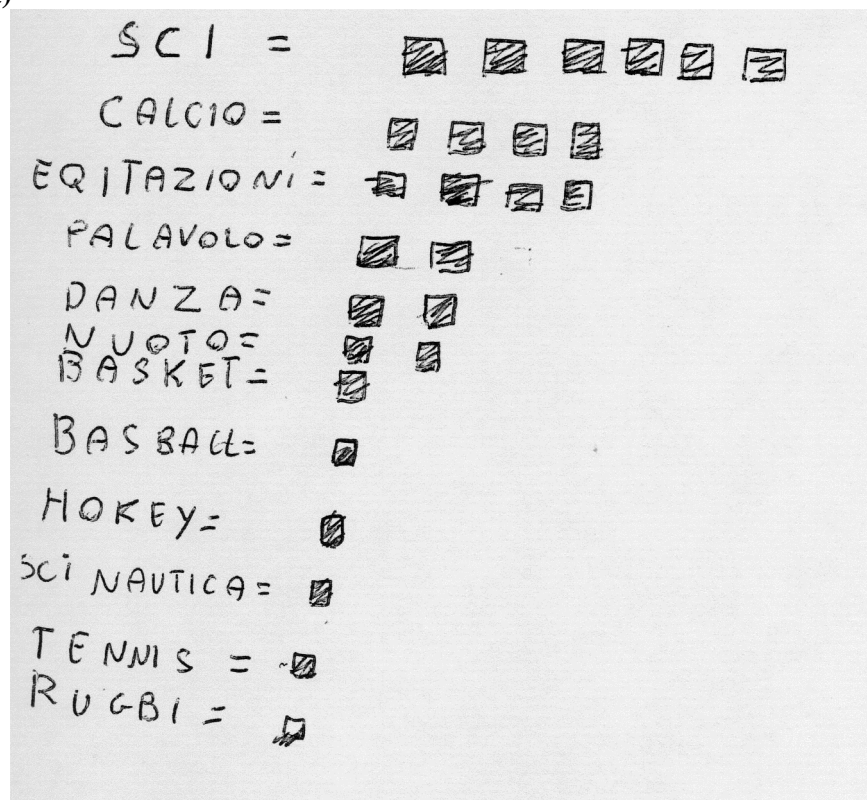 SCI =
CALCIO =
EQITAZIONI =
PALAVOLO =
DANZA =
NUOTO =
BASKET =
BASBALL =
HOKEY =
SCI NAUTICA =
TENNIS =
RUGBI =